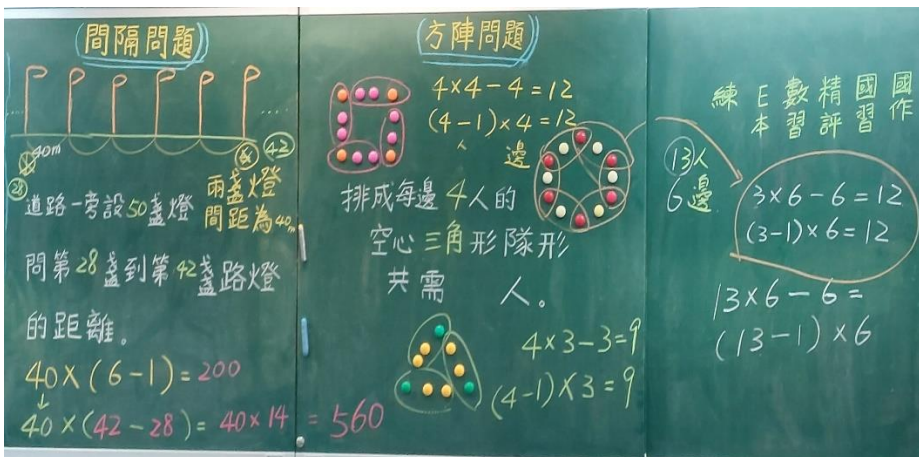 間隔問題
40m
28
6
42
兩盞燈
間距為40m
道路一旁設50盞燈
問第28盞到第42盞路燈
的距離。
40×(6-1)=200
↓
40×(42-28)=40×14=560
方陣問題
4×4-4=12
(4-1)×4=12
人 邊
排成每邊4人的
空心三角形隊形
共需 人。
4×3-3=9
(4-1)×3=9
13人
6邊
3×6-6=12
(3-1)×6=12
13×6-6=
(13-1)×6
國作
國習
精評
數習
E本
練